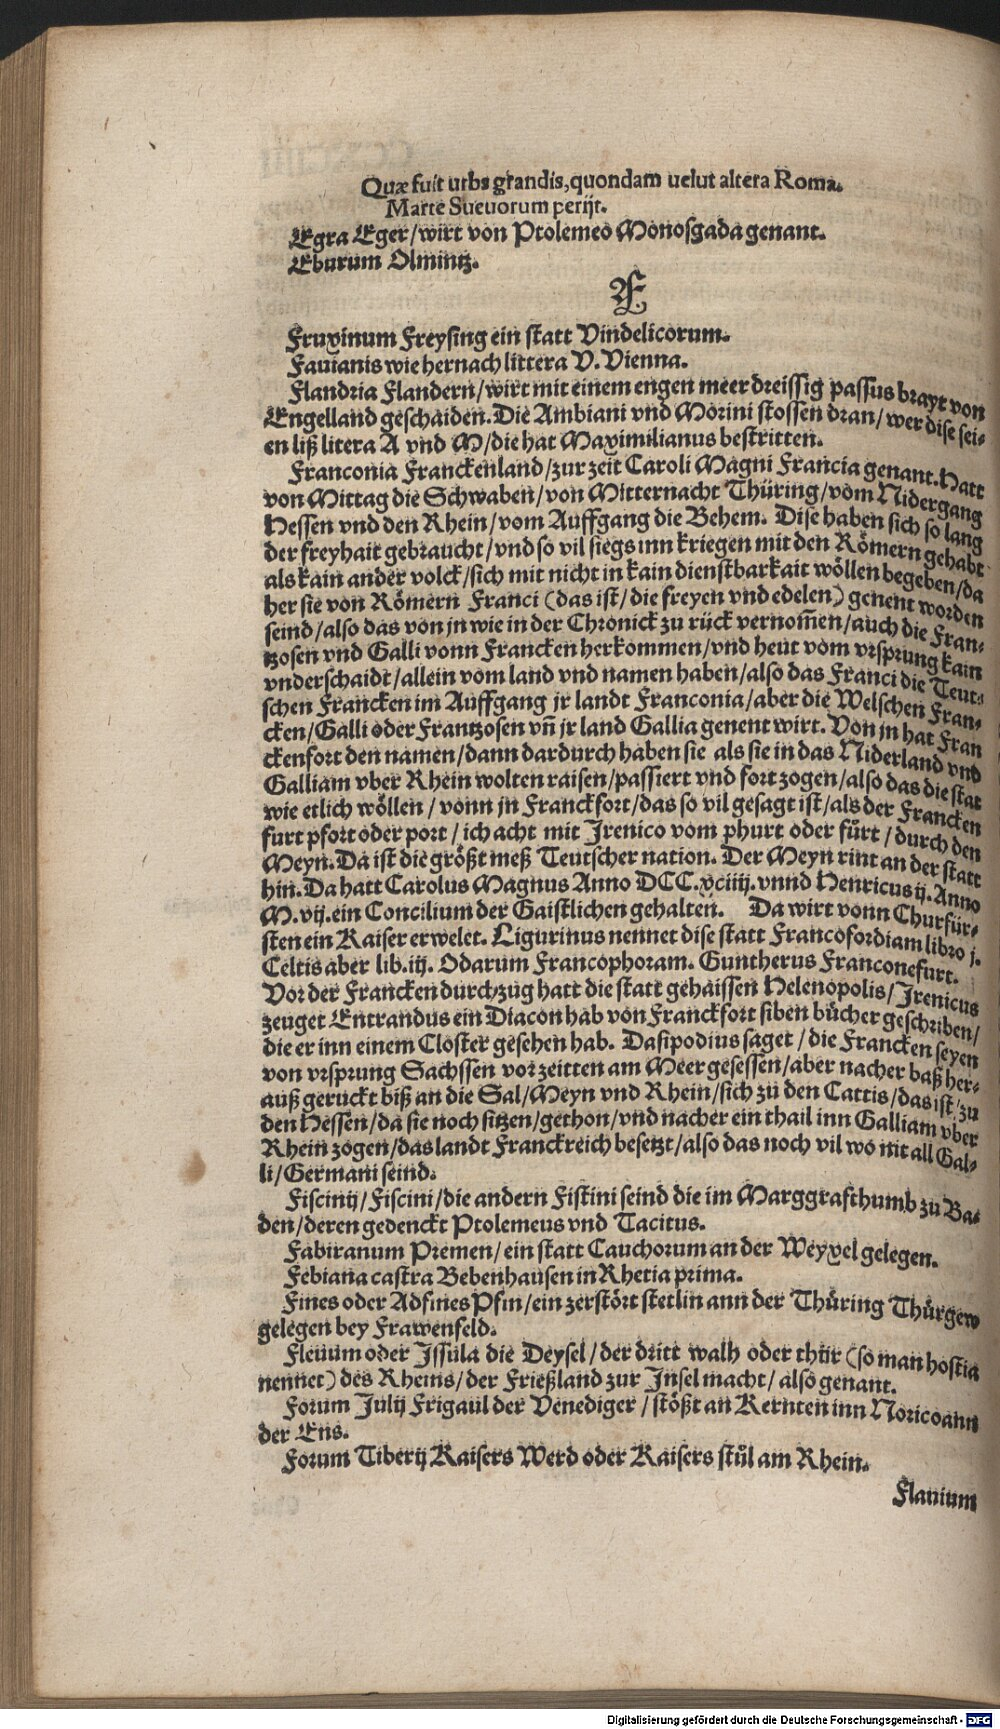 Quæ fuit urbs grandis, quondam uelut altera Roma.
Marte Sueuorum perijt.
Egra Eger/wirt von Ptolemeo Monosgada genant.
Eburum Olmintz.
F
Fruxinum Freysing ein statt Vindelicorum.
Fauianis wie hernach littera V. Vienna.
Flandria Flandern/wirt mit einem engen meer dreissig passus brayt von
Engelland geschaiden. Die Ambiani vnd Morini stossen dran/ wer dise sei-
en liß litera A vnd M/die hat Maximilianus bestritten.
Franconia Franckenland/zur zeit Caroli Magni Francia genant. Hatt
von Mittag die Schwaben/von Mitternacht Thüring/vom Nidergang
Hessen vnd den Rhein/vom Auffgang die Behem. Dise haben sich so lang
der freyhait gebraucht/vnd so vil siegs inn kriegen mit den Römern gehabt
als kain ander volck/sich mit nicht in kain dienstbarkait wöllen begeben/da
her sie von Römern Franci (das ist/ die freyen vnd edelen) genent worden
seind/also das von jn wie in der Chronick zu rück vernom̃en/auch die Fran-
tzosen vnd Galli vonn Francken herkommen/vnd heut vom vrsprung kain
vnderschaidt/allein vom land vnd namen haben/also das Franci die Teut-
schen Francken im Auffgang jr landt Franconia/aber die Welschen Fran-
cken/Galli oder Frantzosen vñ jr land Gallia genent wirt. Von jn hat Fran
ckenfort den namen/dann dardurch haben sie als sie in das Niderland vnd
Galliam vber Rhein wolten raisen/passiert vnd fort zogen/also das die stat
wie etlich wöllen/ vonn jn Franckfort/das so vil gesagt ist/als der Francken
furt pfort oder port/ ich acht mit Irenico vom phurt oder fürt/ durch den
Meyn. Da ist die größt meß Teutscher nation. Der Meyn rint an der statt
hin. Da hatt Carolus Magnus Anno DCC. xciiij. vnnd Henricus ij. Anno
M. vij. ein Concilium der Gaistlichen gehalten. Da wirt vonn Churfür-
sten ein Kaiser erwelet. Ligurinus nennet dise statt Francofordiam libro j.
Celtis aber lib. iij. Odarum Francophoram. Guntherus Franconefurt.
Vor der Francken durchzug hatt die statt gehaissen Helenopolis/ Irenicus
zeuget Entrandus ein Diacon hab von Franckfort siben bücher geschriben/
die er inn einem Closter gesehen hab. Dasipodius saget/ die Francken seyen
von vrsprung Sachssen vor zeitten am Meer gesessen/aber nacher baß her-
auß geruckt biß an die Sal/Meyn vnd Rhein/sich zu den Cattis/das ist/zu
den Hessen/da sie noch sitzen/gethon/vnd nacher ein thail inn Galliam vber
Rhein zogen/das landt Franckreich besetzt/also das noch vil wo nit all Gal-
li/Germani seind.
Fiscinij/Fiscini/die andern Fistini seind die im Marggrafthumb zu Ba-
den/deren gedenckt Ptolemeus vnd Tacitus.
Fabiranum Premen/ein statt Cauchorum an der Weyxel gelegen.
Febiana castra Bebenhausen in Rhetia prima.
Fines oder Adfines Pfin/ein zerstört stetlin ann der Thüring Thürgew
gelegen bey Frawenfeld.
Fleuum oder Issula die Deysel/der dritt walh oder thür (so man hostia
nennet) des Rheins/der Frießland zur Insel macht/ also genant.
Forum Julij Frigaul der Venediger/ stößt an Kernten inn Noricoann
der Ens.
Forum Tiberij Kaisers Werd oder Kaisers stůl am Rhein.
Flanium
Digitalisierung gefördert durch die Deutsche Forschungsgemeinschaft - DFG